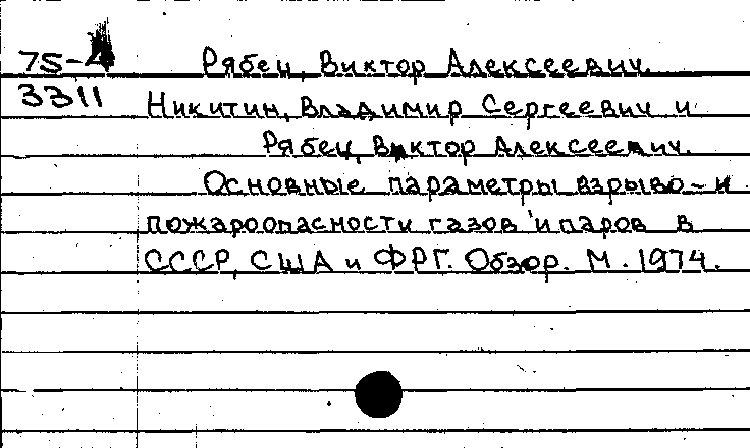 75-4 Рябец, Виктор Алексеевич.
3311 Никитин, Владимир Сергеевич и
Рябец, Виктор Алексеевич.
Основные параметры взрыво- и
пожароопасности газов и паров в
СССР, США и ФРГ. Обзор. М. 1974.